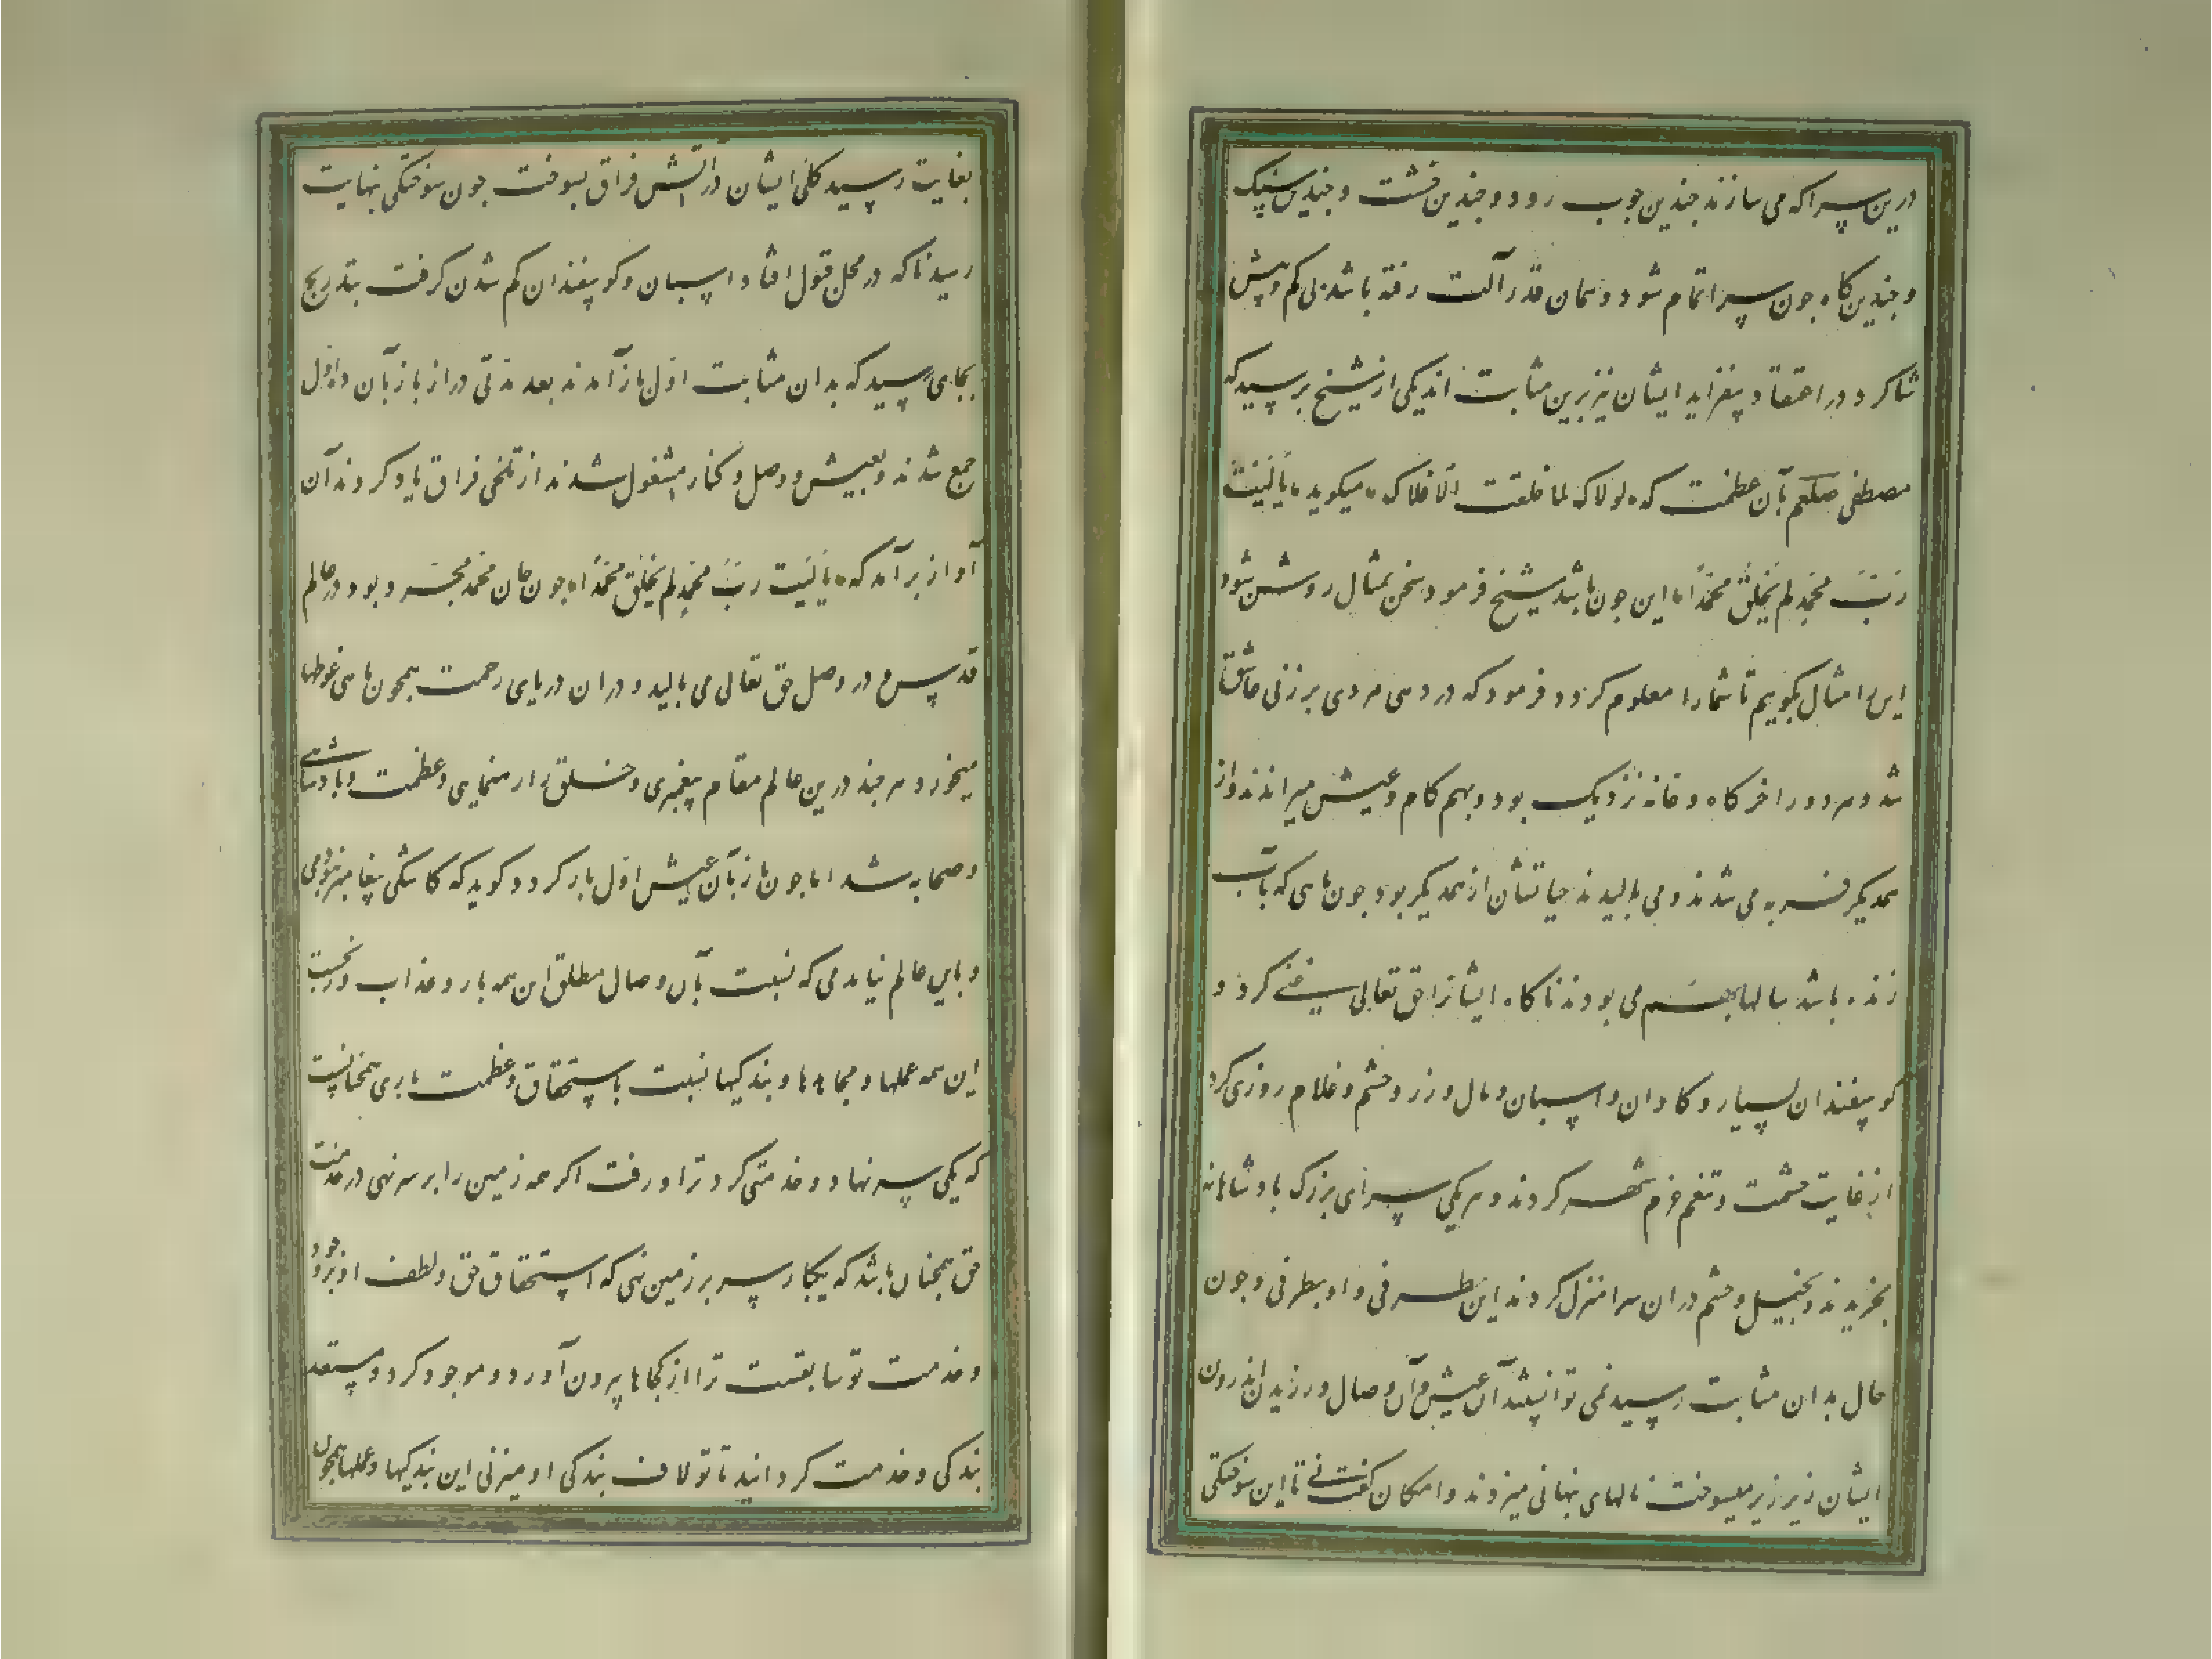 درین سرا که می سازند جندین جوب رود و جندین خشت و جندین سنک
و جندین کاه جون سرا تمام شود و همان قدر آلت رفته باشد بی کم و بیش
شاکرد در اعتقاد بیفزاید ایشان نیز برین مثابت اند یکی از شیخ برسید که
مصطفی صلعم بآن عظمت که لولاک لما خلقت الافلاک میکوید یا لیت
رب محمد لم یخلق محمدا این جون باشد شیخ فرمود سخن بمثال روشن شود
این را مثال بکویم تا شما را معلوم کردد فرمود که در دهی مردی بر زنی عاشق
شد و هر دو را خرکاه و خانه نزدیک بود و بهم کام و عیش میراندند و از
همدیکر فربه می شدند و می بالیدند حیاتشان از همدیکر بود جون ماهی که بآب
زنده باشد سالها بهم می بودند ناکاه ایشانرا حق تعالی غنی کرد و
کوسفندان بسیار و کاوان و اسبان و مال و زر و حشم و غلام روزی کرد
از غایت حشمت و تنعم عزم شهر کردند و هر یکی سرای بزرک بادشاهانه
بخریدند و بخیل و حشم در ان سرا منزل کردند این بطرفی و او بطرفی و جون
حال بدان مثابت رسید نمی توانستند آن عیش و آن وصال ورزیدن اندرون
ایشان زیر زیر میسوخت نالهای بنهانی میزدند و امکان کفت نی تا این سوختکی
بغایت رسید کلی ایشان در آتش فراق بسوخت جون سوختکی بنهایت
رسید ناله در محل قبول افتاد اسبان و کوسفندان کم شدن کرفت بتدریج
بجایی رسید که بدان مثابت اول باز آمدند بعد مدتی دراز باز بآن ده اول
جمع شدند و بعیش و وصل و کنار مشغول شدند از تلخی فراق یاد کردند آن
آواز برآمد که یا لیت رب محمد لم یخلق محمدا جون جان محمد مجرد بود در عالم
قدس و در وصل حق تعالی می بالید و در ان دریای رحمت همجون ماهی غوطها
میخورد هر جند درین عالم مقام بیغمبری و خلق را رهنمایی و عظمت و بادشاهی
و صحابه شد اما جون باز بآن عیش اول باز کردد کوید که کاشکی بیغامبر نبودمی
و باین عالم نیامدمی که نسبت بآن وصال مطلق این همه بار و عذاب و رنجست
این همه عملها و مجاهدها و بندکیها نسبت باستحقاق و عظمت باری همجنانست
که یکی سر نهاد و خدمتی کرد ترا و رفت اکر همه زمین را بر سر نهی در خدمت
حق همجنان باشد که یکبار سر بر زمین نهی که استحقاق حق و لطف او بر وجود
و خدمت تو سابقست ترا از کجاها بیرون آورد و موجود کرد و مستعد
بندکی و خدمت کردانید تا تو لاف بندکی او میزنی این بندکیها و عملها همجون